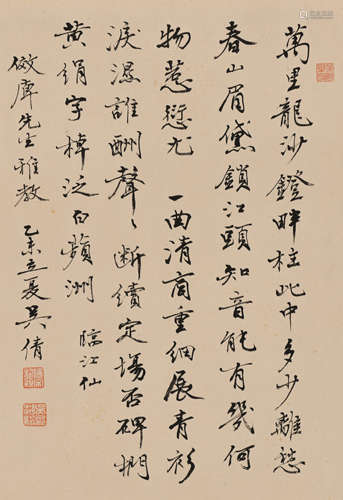 萬里龍沙鐙畔柱此中多少離愁
春山眉黛鎖江頭知音能有幾何
物惹愆尤 一曲清商重細展青衫
淚濕誰酬聲聲斷續定場否碑捫
黃絹字棹泛白蘋洲 臨江仙
儆庵先生雅教 乙未立夏吳倩